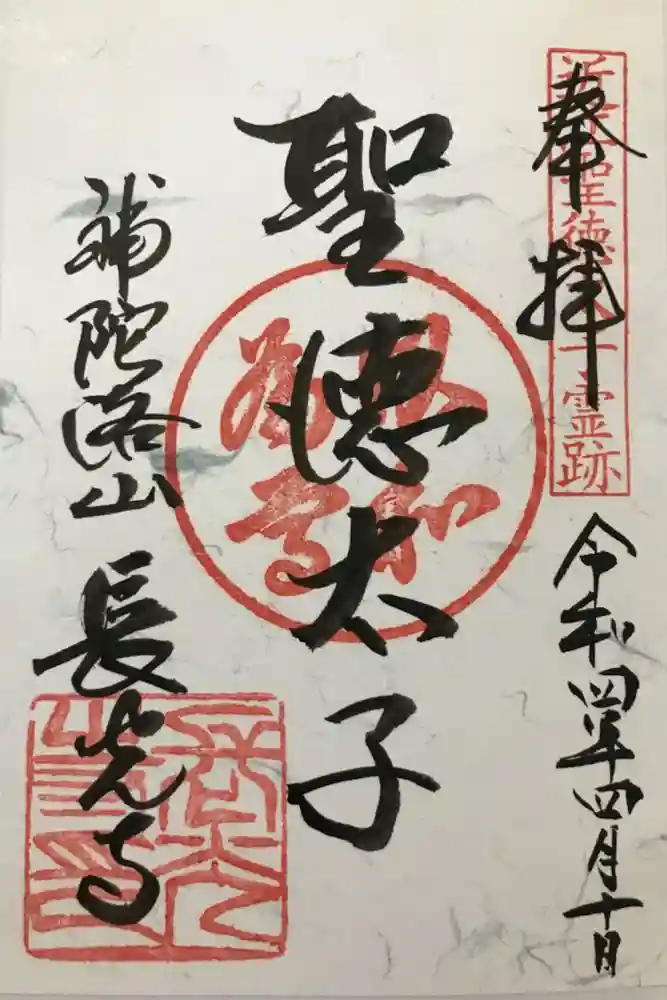 近江聖徳太子霊跡
奉拝
令和四年四月十日
聖徳太子
以和
為貴
補陀落山 長光寺